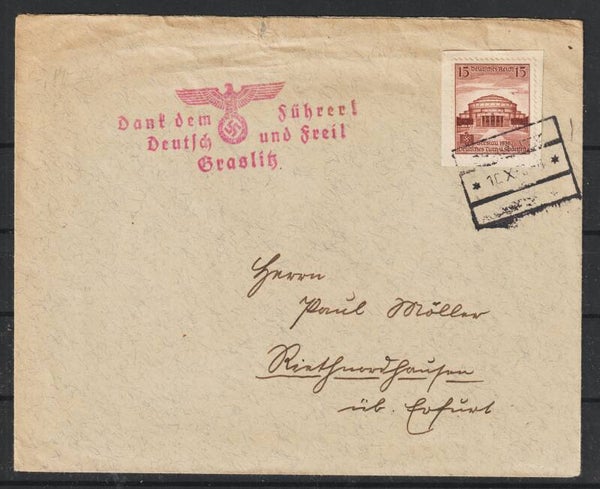 Dank dem Führer!
Deutsch und Frei!
Graslitz
15 Deutsches Reich 15
Breslau 1938
Deutsches Turn- u. Sportfest
* 10.X. *
Herrn
Paul Möller
Riethnordhausen
üb. Erfurt